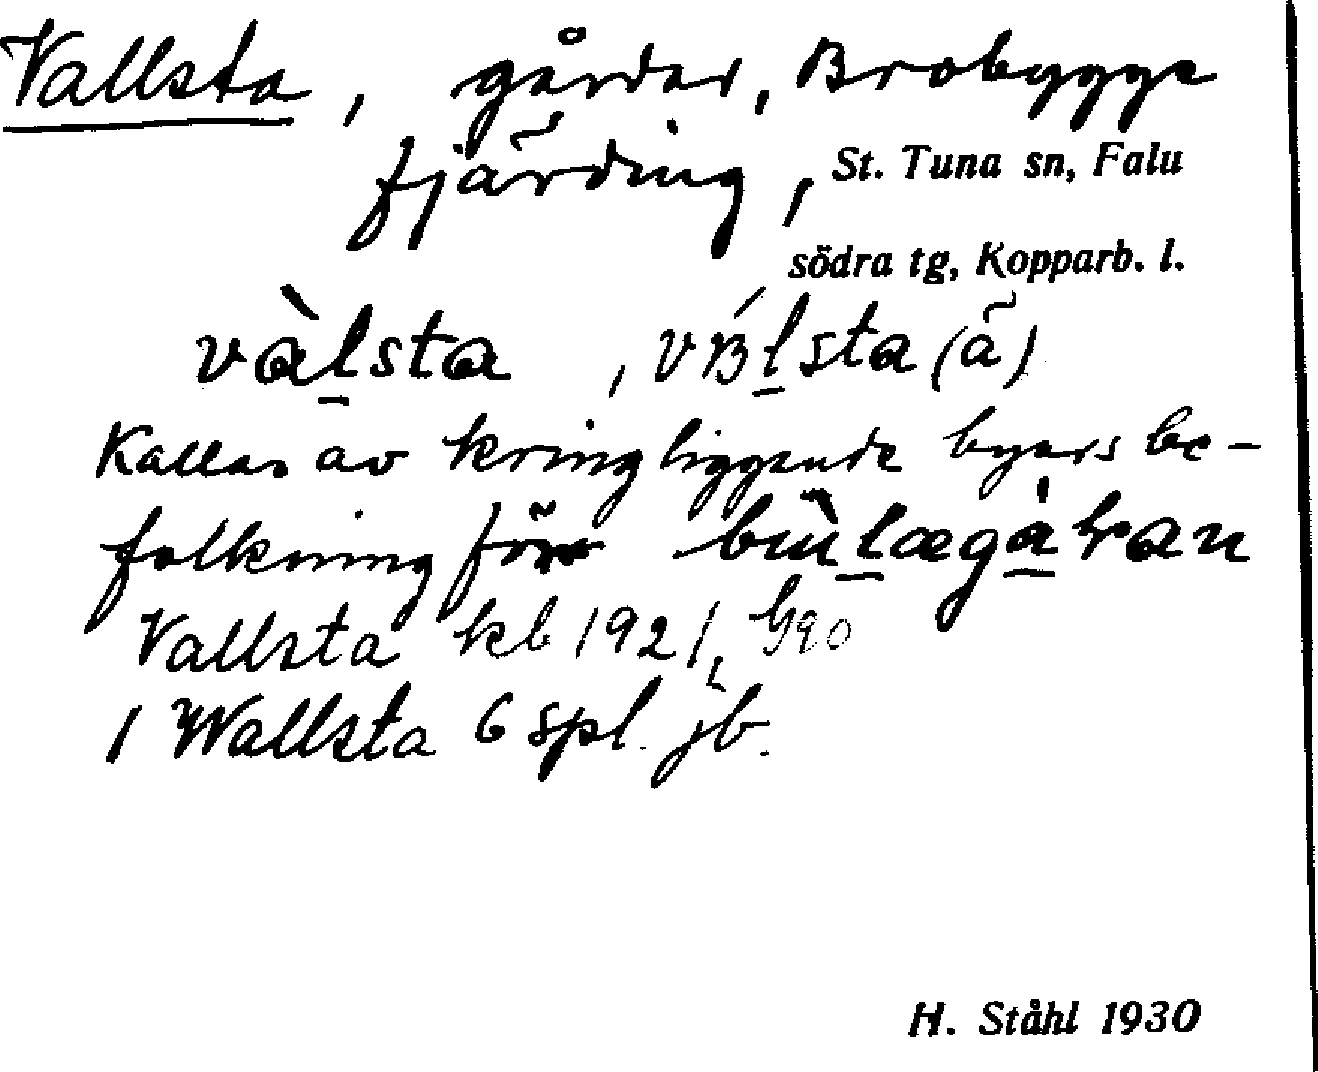 Vallsta, gårdar, Brobygge
fjärding, St. Tuna sn, Falu
södra tg, Kopparb. l.
vàl̠sta, vʙ́l̠sta (ã)
Kallas av kringliggande byars be-
folkning för
Vallsta kb 1921, G90
1 Wallsta 6 spl. jb.
H. Ståhl 1930